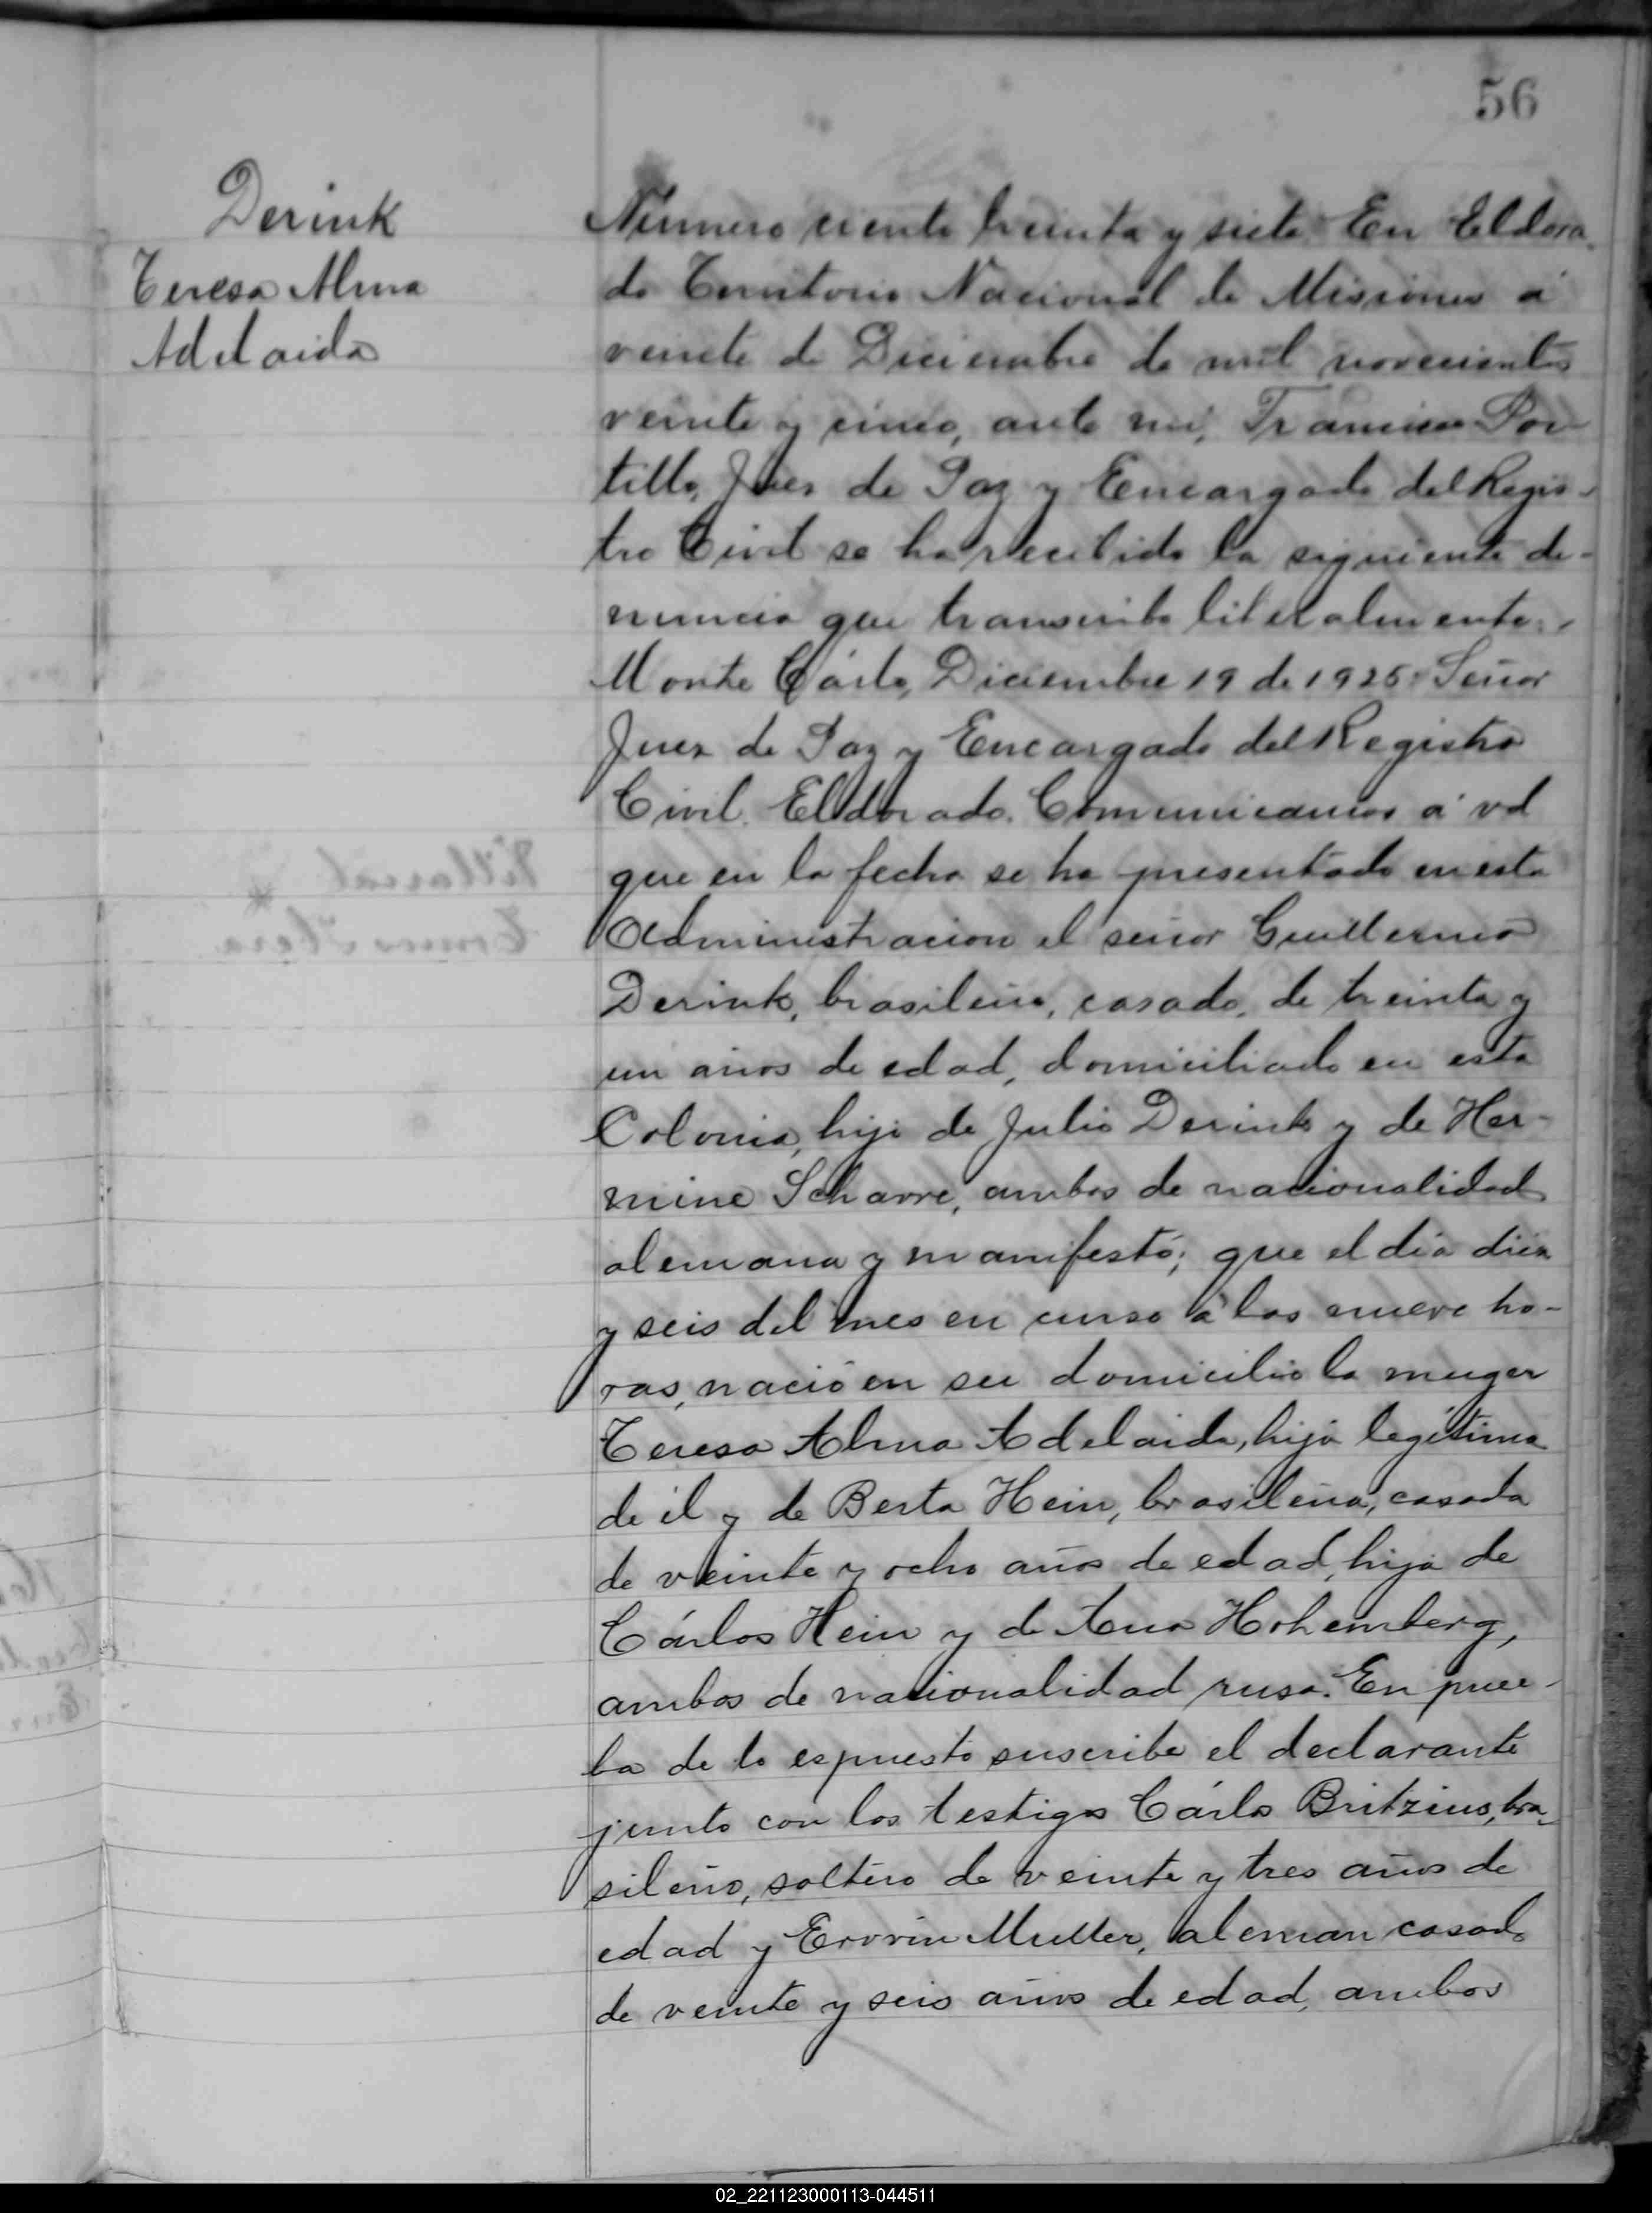 56
Derink
Teresa Alma
Adelaida
Número ciento treinta y siete En Eldora
do Territorio Nacional de Misiones á
veinte de Diciembre de mil novecientos
veinte y cinco, ante mi, Francisco Por-
tillo, Juez de Paz y Encargado del Regis-
tro Civil se ha recibido la siguiente de-
nuncia que transcribo literalmente:
Monte Cárlo, Diciembre 19 de 1925. Señor
Juez de Paz y Encargado del Registro
Civil. Eldorado. Comunicamos á vd
que en la fecha se ha presentado en esta
Administracion el señor Guillermo
Derink, brasileño, casado, de treinta y
un años de edad, domiciliado en esta
Colonia, hijo de Julio Derink y de Her-
mine Scharre, ambos de nacionalidad
alemana y manifestó; que el dia diez
y seis del mes en curso á las nueve ho-
ras, nació en su domicilio la muger
Teresa Alma Adelaida, hija legítima
de él y de Berta Hein, brasileña, casada
de veinte y ocho años de edad, hija de
Cárlos Hein y de Ana Hohemberg,
ambos de nacionalidad rusa. En prue-
ba de lo espuesto suscribe el declarante
junto con los testigos Cárlos Britzius, bra-
sileño, soltero de veinte y tres años de
edad y Ervvin Muller, aleman casado
de veinte y seis años de edad, ambos
02_221123000113-044511